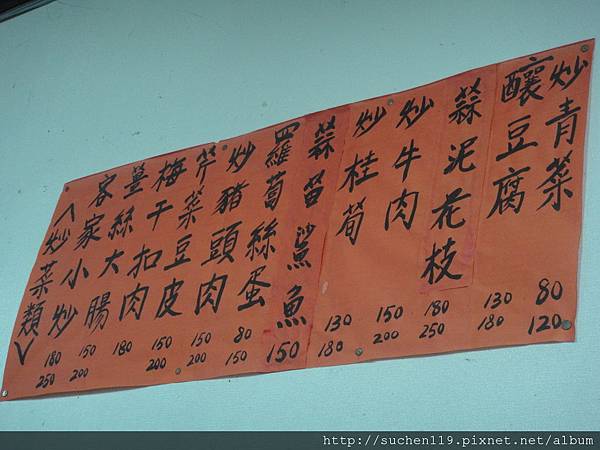 <炒菜類>
客家小炒 180 250
薑絲大腸 150 200
梅干扣肉 180
芹菜豆皮 150 200
炒豬頭肉 150 200
羅蔔絲蛋 80 150
蒜苗鯊魚 150
炒桂筍 130 180
炒牛肉 150 200
蒜泥花枝 180 250
釀豆腐 130 180
炒青菜 80 120
http://suchen119.pixnet.net/album